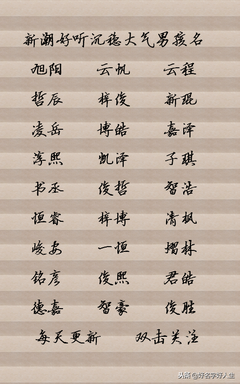 新潮好听沉稳大气男孩名
旭阳 云帆 云程
哲辰 梓俊 新琨
凌岳 博皓 嘉泽
淳熙 凯泽 子琪
书丞 俊哲 智浩
恒睿 梓博 清枫
峻安 一恒 熠林
铭彦 俊熙 君皓
德嘉 智豪 俊胜
每天更新 双击关注